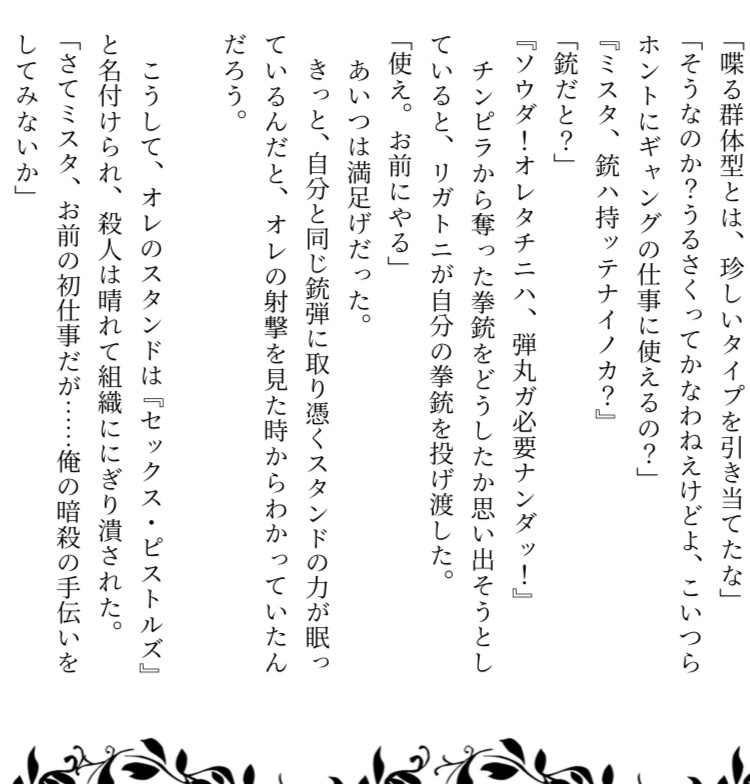 「喋る群体型とは、珍しいタイプを引き当てたな」
「そうなのか？うるさくってかなわねえけどよ、こいつら
ホントにギャングの仕事に使えるの？」
『ミスタ、銃ハ持ッテナイノカ？』
「銃だと？」
『ソウダ！オレタチニハ、弾丸ガ必要ナンダッ！』
チンピラから奪った拳銃をどうしたか思い出そうとし
ていると、リガトニが自分の拳銃を投げ渡した。
「使え。お前にやる」
あいつは満足げだった。
きっと、自分と同じ銃弾に取り憑くスタンドの力が眠っ
ているんだと、オレの射撃を見た時からわかっていたん
だろう。
こうして、オレのスタンドは『セックス・ピストルズ』
と名付けられ、殺人は晴れて組織ににぎり潰された。
「さてミスタ、お前の初仕事だが……俺の暗殺の手伝いを
してみないか」